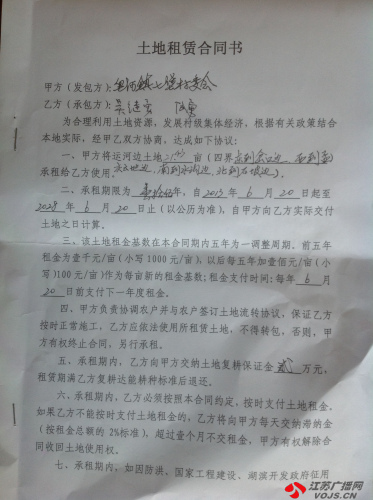 土地租赁合同书
甲方（发包方）：
乙方（承包方）：
为合理利用土地资源，发展村级集体经济，根据有关政策结合
本地实际，经甲乙双方协商，达成如下协议：
一、甲方将运河边土地 亩（四界
承租给乙方使用。
二、承租期限为 年，自2013年6月20日起至
2028年6月20日止（以公历为准），自甲方向乙方实际交付
土地之日计算。
三、该土地租金基数在本合同期内五年为一调整周期。前五年
租金为壹千元/亩（小写1000元/亩），以后每五年加壹佰元/亩（小
写）100元/亩）作为每亩新的租金基数；租金支付时间：每年6月
20日前支付下一年度租金。
四、甲方负责协调农户并与农户签订土地流转协议，保证乙方
按时正常施工，乙方应依法使用所租赁土地，不得转包，否则，甲
方有权终止合同，另行承租。
五、承租期内，乙方向甲方交纳土地复耕保证金贰万元，
租赁期满乙方复耕达能耕种标准后退还。
六、承租期内，乙方必须按照本合同约定，按时支付土地租金，
如果乙方不能按时支付土地租金的，乙方将向甲方每天交纳滞纳金
（按租金总额的2%标准），超过壹个月不交租金，甲方有权解除合
同收回土地使用权。
七、承租期内，如因防洪、国家工程建设、湖滨开发政府征用
江苏广播网
VOJS.CN